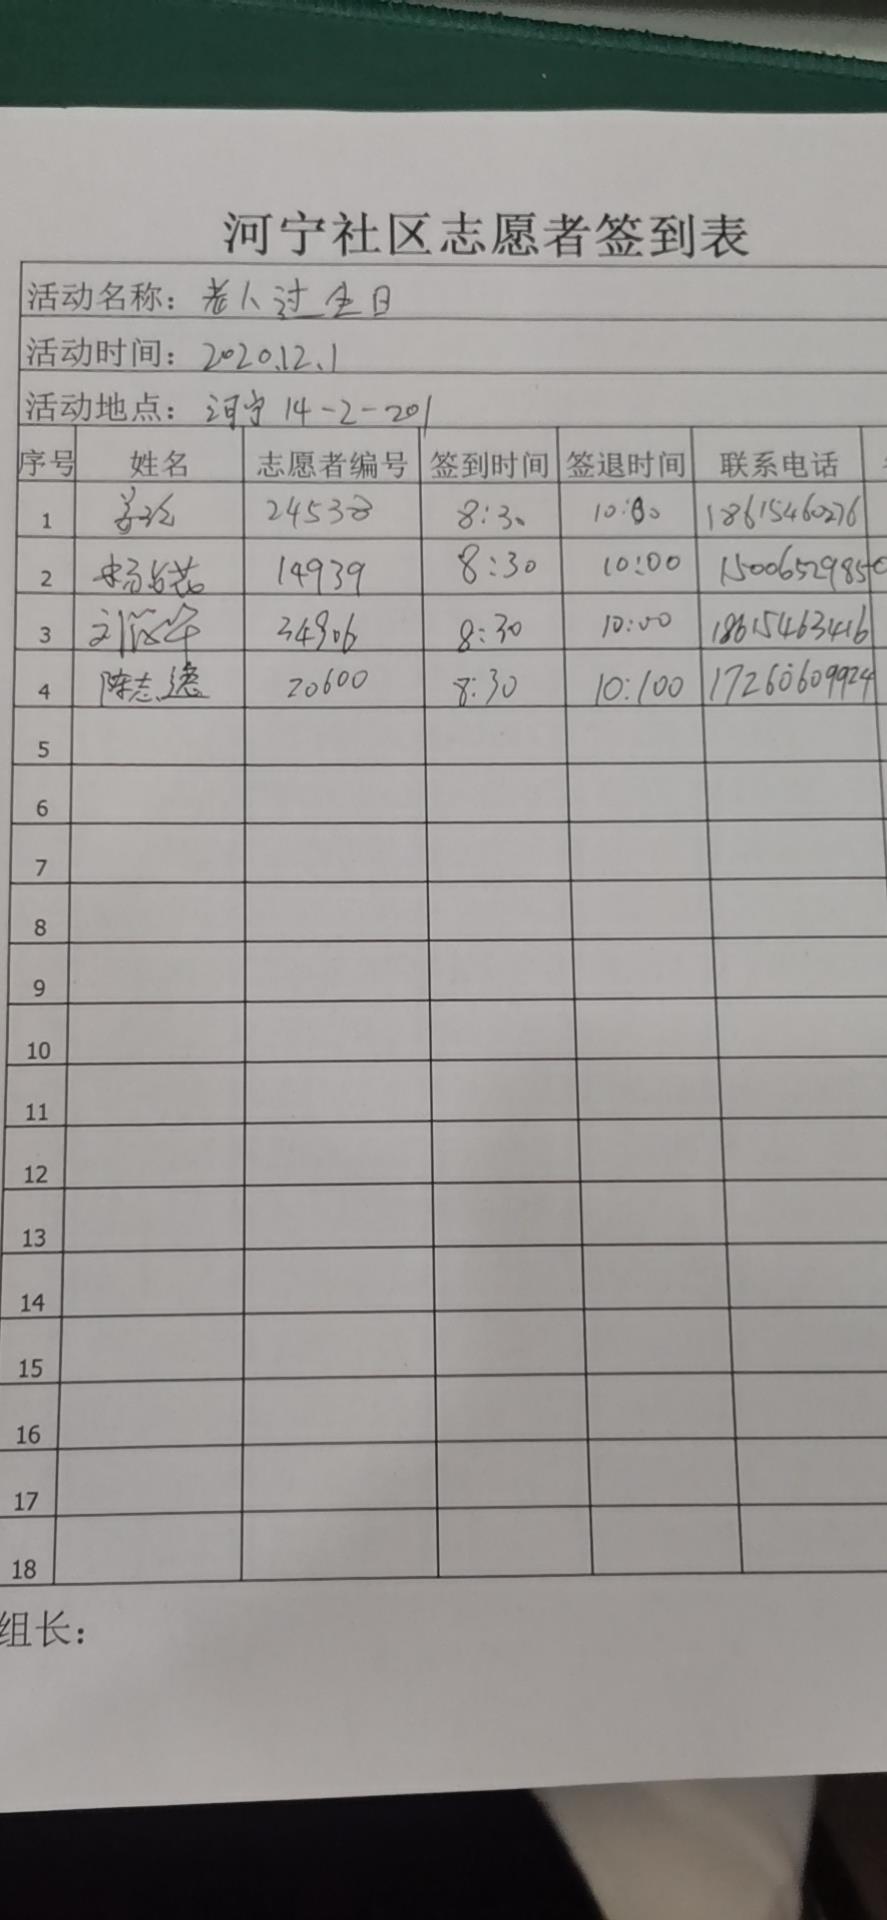 河宁社区志愿者签到表
活动名称：老人过生日
活动时间：2020.12.1
活动地点：河宁14-2-201
序号 姓名 志愿者编号 签到时间 签退时间 联系电话
1 24538 8:30 10:00 18615460276
2 14939 8:30 10:00 15006529850
3 34906 8:30 10:00 18615463416
4 陈志远 20600 8:30 10:100 17260609924
5
6
7
8
9
10
11
12
13
14
15
16
17
18
组长：